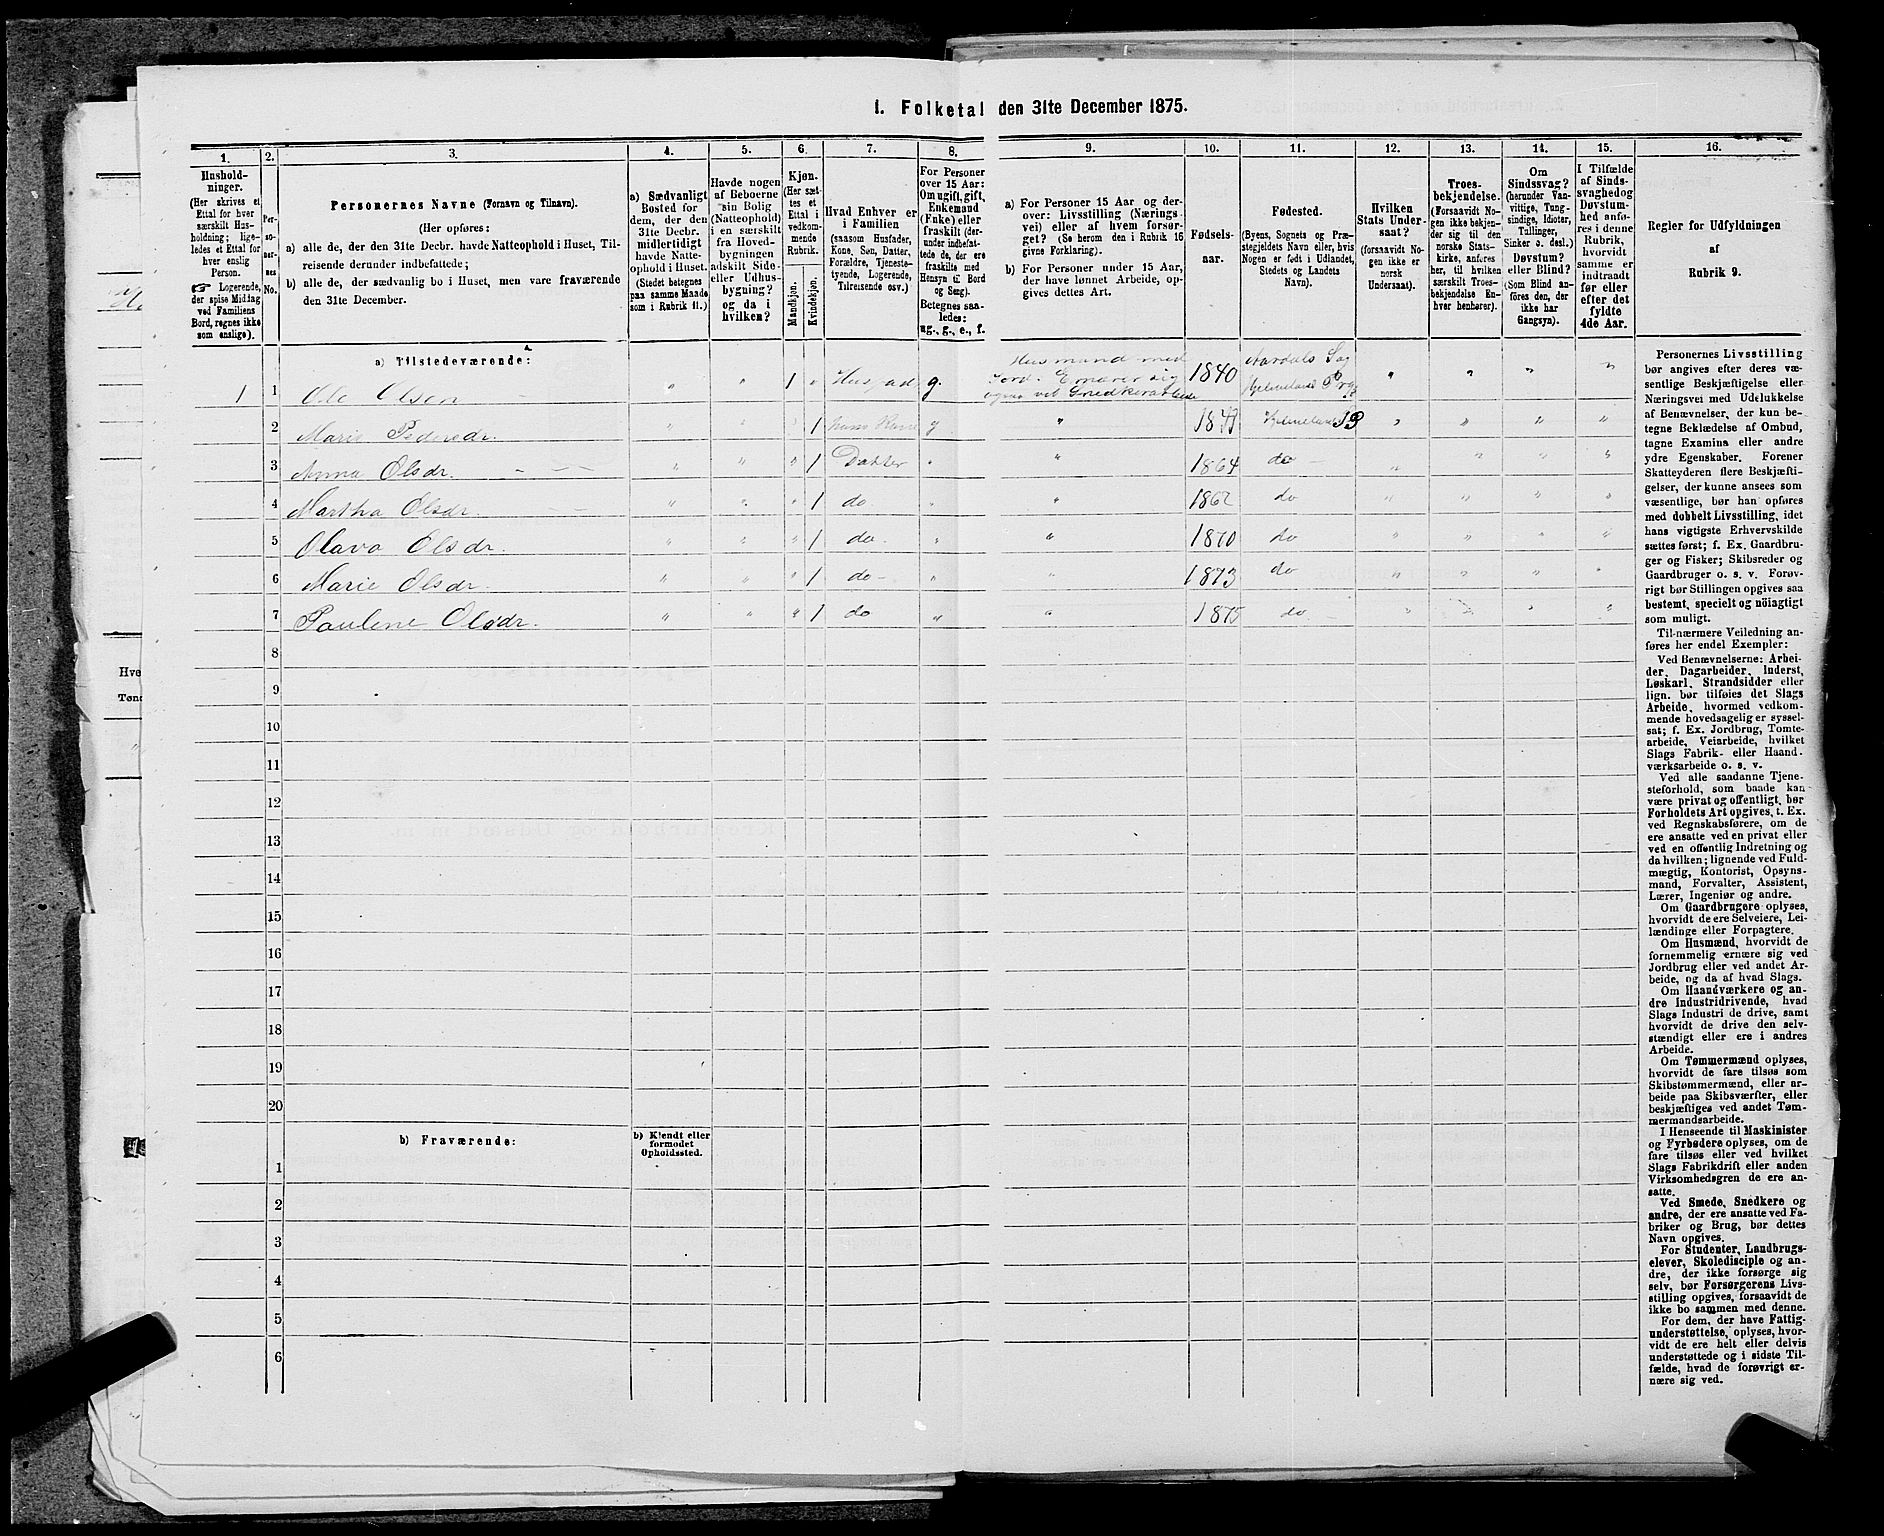 1. Folketal den 31te December 1875.
1.
Hushold-
ninger.
(Her skrives et
Ettal for hver
særskilt Hus-
holdning; lige-
ledes et Ettal for
hver enslig
Person.
☞ Logerende,
der spise Middag
ved Familiens
Bord, regnes ikke
som enslige).
2.
Per-
so-
ner-
nes
No.
3.
Personernes Navne (Fornavn og Tilnavn).
(Her opføres:
a) alle de, der den 31te Decbr. havde Natteophold i Huset, Til-
reisende derunder indbefattede;
b) alle de, der sædvanlig bo i Huset, men vare fraværende
den 31te December.
4.
a) Sædvanligt
Bosted for
dem, der den
31te Decbr.
midlertidigt
havde Natte-
ophold i Huset.
(Stedet betegnes
paa samme Maade
som i Rubrik 11.)
5.
Havde nogen
af Beboerne
sin Bolig
(Natteophold)
i en særskilt
fra Hoved-
bygningen
adskilt Side-
eller Udhus-
bygning?
og da i
hvilken?
6.
Kjøn.
(Her sæt-
tes et
Ettal i
vedkom-
mende
Rubrik.
Mandkjøn.
Kvindekjøn.
7.
Hvad Enhver er
i Familien
(saasom Husfader,
Kone, Søn, Datter,
Forældre, Tjeneste-
tyende, Logerende,
Tilreisende osv.)
8.
For Personer
over 15 Aar:
Om ugift, gift,
Enkemand
(Enke) eller
fraskilt (der-
under indbefat-
tede de, der ere
fraskilte med
Hensyn til Bord
og Seng).
Betegnes saa-
ledes:
ug., g., e., f.
9.
a) For Personer 15 Aar og der-
over: Livsstilling (Nærings-
vei) eller af hvem forsør-
get? (Se herom den i Rubrik 16
givne Forklaring).
b) For Personer under 15 Aar,
der have lønnet Arbeide, op-
gives dettes Art.
10.
Fødsels-
aar.
11.
Fødested.
(Byens, Sognets og Præ-
stegjeldets Navn eller, hvis
Nogen er født i Udlandet,
Stedets og Landets
Navn).
12.
Hvilken
Stats Under-
saat?
(forsaavidt No-
gen ikke er
norsk
Undersaat).
13.
Troes-
bekjendelse.
(Forsaavidt No-
gen ikke bekjen-
der sig til den
norske Stats-
kirke, anføres
her, til hvilken
særskilt Troes-
bekjendelse En-
hver henhører).
14.
Om
Sindssvag?
(herunder Van-
vittige, Tung-
sindige, Idioter,
Tullinger,
Sinker o. desl.)
Døvstum?
eller Blind?
(Som Blind an-
føres den, der
ikke har
Gangsyn).
15.
I Tilfælde
af Sinds-
svaghed og
Døvstum-
hed anfø-
res i denne
Rubrik,
hvorvidt
samme er
indtraadt
før eller
efter det
fyldte
4de Aar.
16.
Regler for Udfyldningen
af
Rubrik 9.
a) Tilstedeværende:
1 1 Ole Olsen " " 1 " Husfad g. Husmand med Jord. Ernærer sig ogsaa ved Snedkerarbeide 1840 Aardals Sog Hjelmeland Prg " " " "
2 Marie Pedersdr. " " " 1 hans Kone g " 1841 Hjelmelands P " " " "
3 Anna Olsdr. " " " 1 Datter " " 1864 do " " " "
4 Martha Olsdr. " " " 1 do " " 1867 do " " " "
5 Olava Olsdr. " " " 1 do. " " 1870 do " " " "
6 Marie Olsdr. " " " 1 do " " 1873 do " " " "
7 Paulene Olsdr. " " " 1 do " " 1875 do " " " "
8
9
10
11
12
13
14
15
16
17
18
19
20
b) Fraværende:
b) Kjendt eller
formodet
Opholdssted.
1
2
3
4
5
6
Personernes Livsstilling
bør angives efter deres væ-
sentlige Beskjæftigelse eller
Næringsvei med Udelukkelse
af Benævnelser, der kun be-
tegne Beklædelse af Ombud,
tagne Examina eller andre
ydre Egenskaber. Forener
Skatteyderen flere Beskjæfti-
gelser, der kunne ansees som
væsentlige, bør han opføres
med dobbelt Livsstilling, idet
hans vigtigste Erhvervskilde
sættes først; f. Ex. Gaardbru-
ger og Fisker; Skibsreder og
Gaardbruger o. s. v. Forøv-
rigt bør Stillingen opgives saa
bestemt, specielt og nöiagtigt
som muligt.
Til nærmere Veiledning an-
føres her endel Exempler:
Ved Benævnelserne: Arbei-
der, Dagarbeider, Inderst,
Løskarl, Strandsidder eller
lign. bør tilføies det Slags
Arbeide, hvormed vedkom-
mende hovedsagelig er syssel-
sat; f. Ex. Jordbrug, Tomte-
arbeide, Veiarbeide, hvilket
Slags Fabrik- eller Haand-
værksarbeide o. s. v.
Ved alle saadanne Tjene-
steforhold, som baade kan
være privat og offentligt, bør
Forholdets Art opgives, t. Ex.
ved Regnskabsførere, om de
ere ansatte ved en privat eller
ved en offentlig Indretning og
da hvilken; lignende ved Fuld-
mægtig, Kontorist, Opsyns-
mand, Forvalter, Assistent,
Lærer, Ingeniør og andre.
Om Gaardbrugere oplyses,
hvorvidt de ere Selveiere, Lei-
lændinge eller Forpagtere.
Om Husmænd, hvorvidt de
fornemmelig ernære sig ved
Jordbrug eller ved andet Ar-
beide, og da af hvad Slags.
Om Haandværkere og an-
dre Industridrivende, hvad
Slags Industri de drive, samt
hvorvidt de drive den selv-
stændigt eller ere i andres
Arbeide.
Om Tømmermænd oplyses,
hvorvidt de fare tilsøs som
Skibstømmermænd, eller ar-
beide paa Skibsværfter, eller
beskjæftiges ved andet Tøm-
mermandsarbeide.
I Henseende til Maskinister
og Fyrbødere oplyses, om de
fare tilsøs eller ved hvilket
Slags Fabrikdrift eller anden
Virksomhedsgren de ere an-
satte.
Ved Smede, Snedkere og
andre, der ere ansatte ved Fa-
briker og Brug, bør dettes
Navn opgives.
For Studenter, Landbrugs-
elever, Skoledisciple og an-
dre, der ikke forsørge sig
selv, bør Forsørgerens Livs-
stilling opgives, forsaavidt de
ikke bo sammen med denne.
For dem, der have Fattig-
understøttelse, oplyses, hvor-
vidt de ere helt eller delvis
understøttede og i sidste Til-
fælde, hvad de forøvrigt er-
nære sig ved.